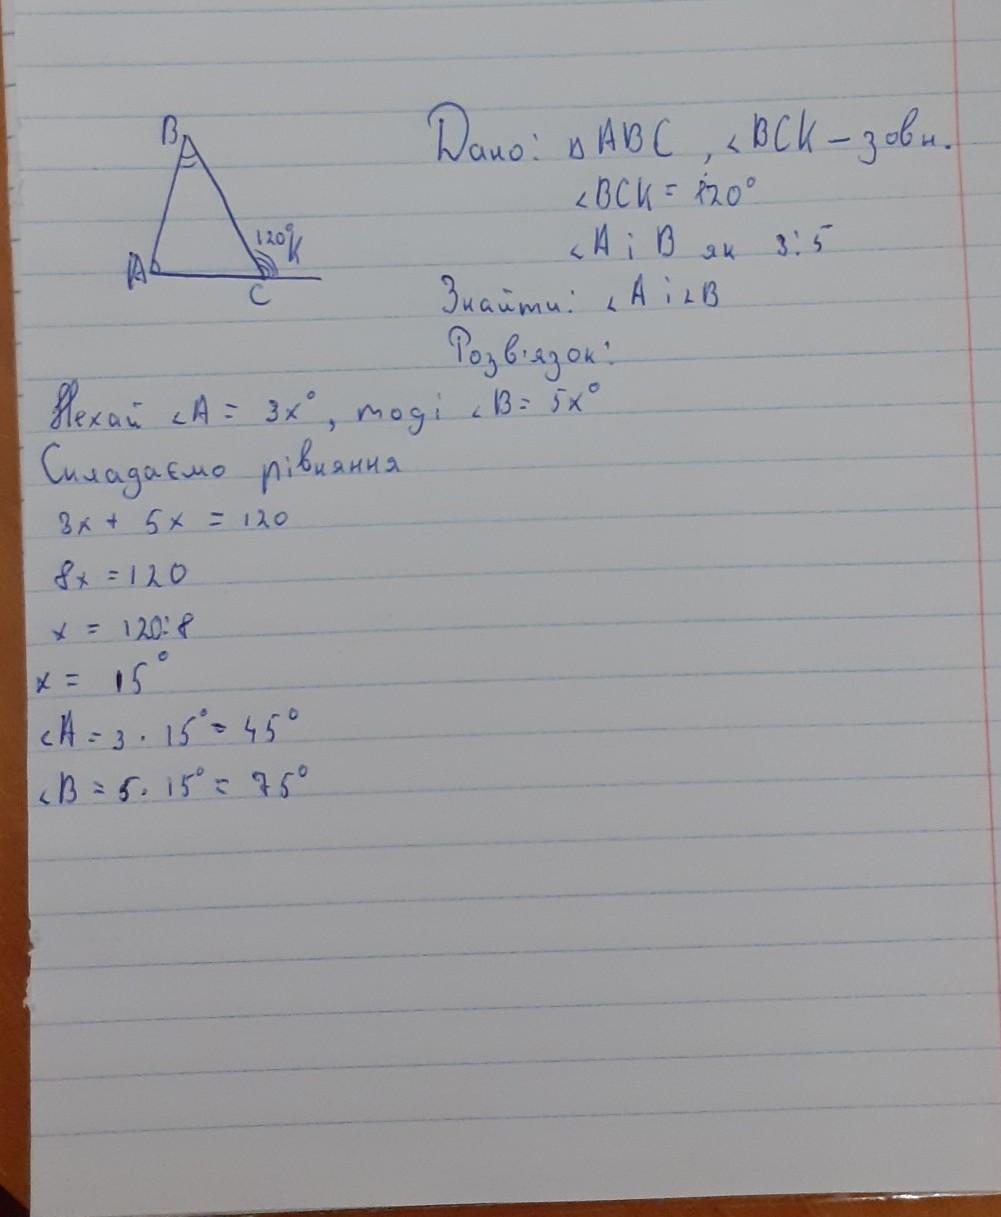 B
120°
K
A
C
Дано: △ABC, ∠BCK - зовн.
∠BCK = 120°
∠A і B як 3:5
Знайти: ∠A і ∠B
Розв'язок:
Нехай ∠A = 3x°, тоді ∠B = 5x°
Складаємо рівняння
3x + 5x = 120
8x = 120
x = 120:8
x = 15°
∠A = 3 · 15° = 45°
∠B = 5 · 15° = 75°